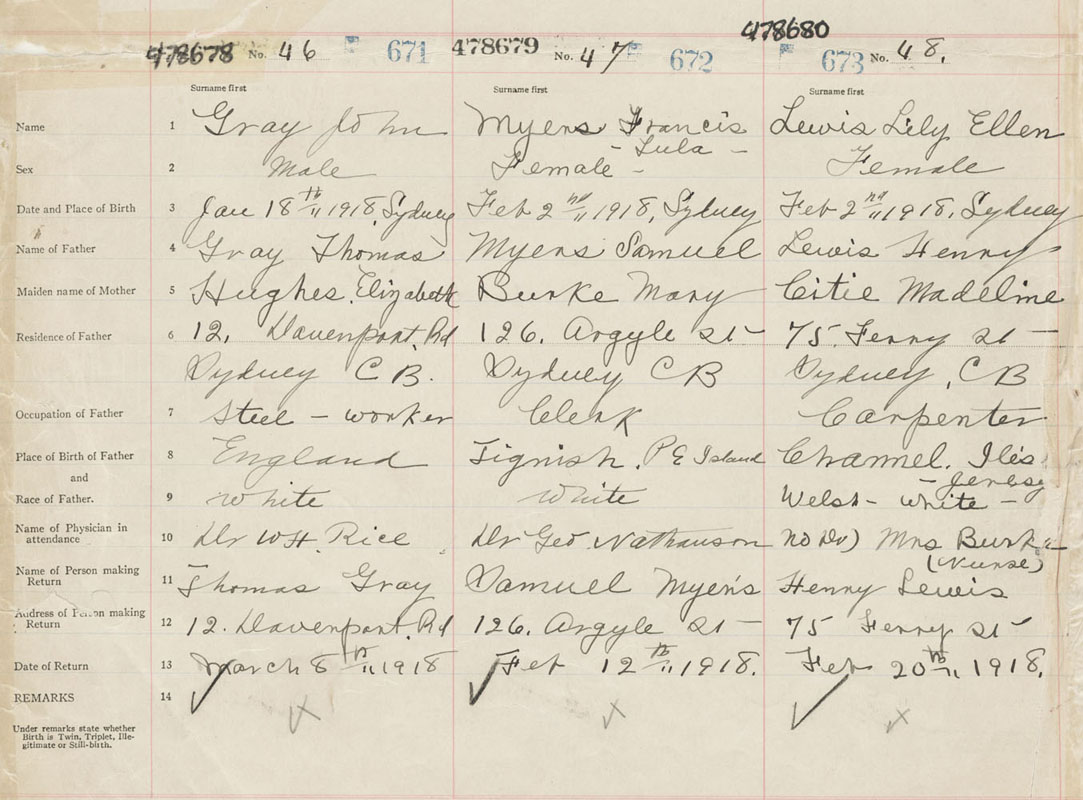 478678 No. 46 671 478679 No. 47 672 478680 673 No. 48.
Surname first Surname first Surname first
Name 1 Gray John Myers Francis Lewis Lily Ellen
- Lula -
Sex 2 Male Female - Female
Date and Place of Birth 3 Jan 18th 1918, Sydney Feb 2nd 1918, Sydney Feb 2nd 1918, Sydney
Name of Father 4 Gray Thomas Myers Samuel Lewis Henry
Maiden name of Mother 5 Hughes, Elizabeth Burke Mary Citie Madeline
Residence of Father 6 12, Davenport, Rd 126, Argyle St 75, Ferry St
Sydney C B. Sydney C B Sydney, C B
Occupation of Father 7 Steel - worker Clerk Carpenter
Place of Birth of Father 8 England Tignish, P E Island Channel, Iles
and - Jersey
Race of Father. 9 White White Welsh - White -
Name of Physician in
attendance 10 Dr W H. Rice Dr Geo. Nathanson No Dr) Mrs Burke
(Nurse)
Name of Person making
Return 11 Thomas Gray Samuel Myers Henry Lewis
Address of Person making
Return 12 12. Davenport, Rd 126, Argyle St 75 Ferry St
Date of Return 13 March 8th 1918 Feb 12th 1918. Feb 20th 1918.
REMARKS 14
Under remarks state whether
Birth is Twin, Triplet, Ille-
gitimate or Still-birth.